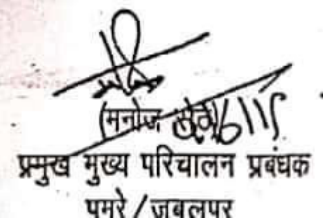 (मनोज
प्रमुख मुख्य परिचालन प्रबंधक
पमरे/जबलपुर